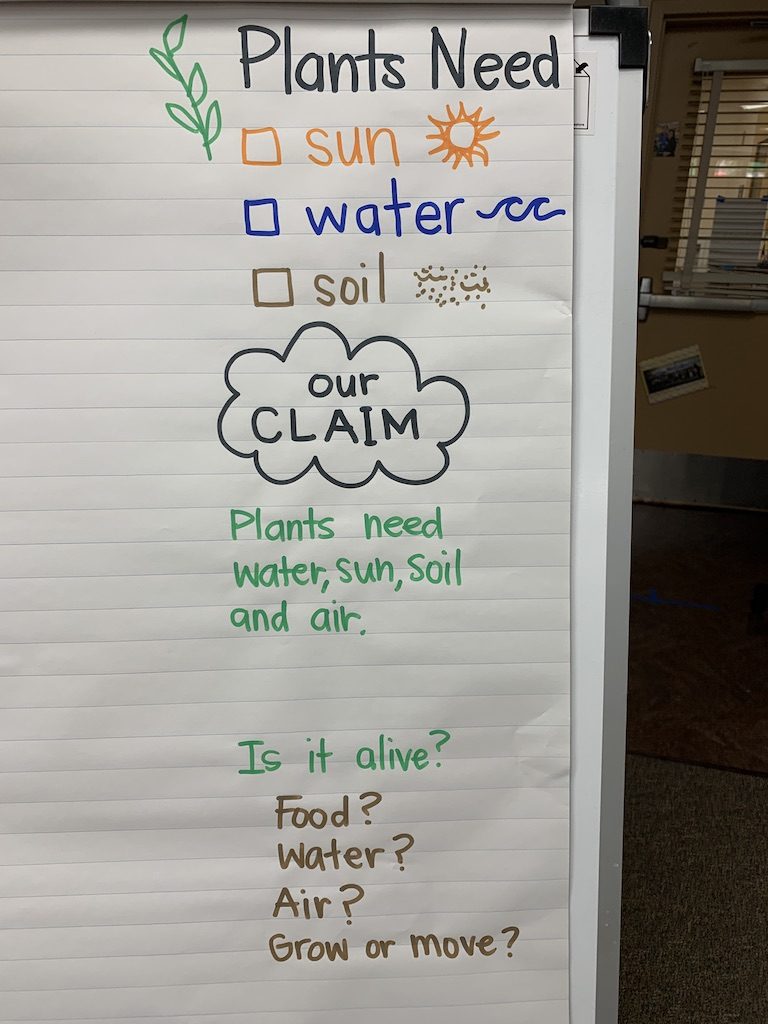 Plants Need
sun
water
soil
our
CLAIM
Plants need
water, sun, soil
and air.
Is it alive?
Food?
Water?
Air?
Grow or move?